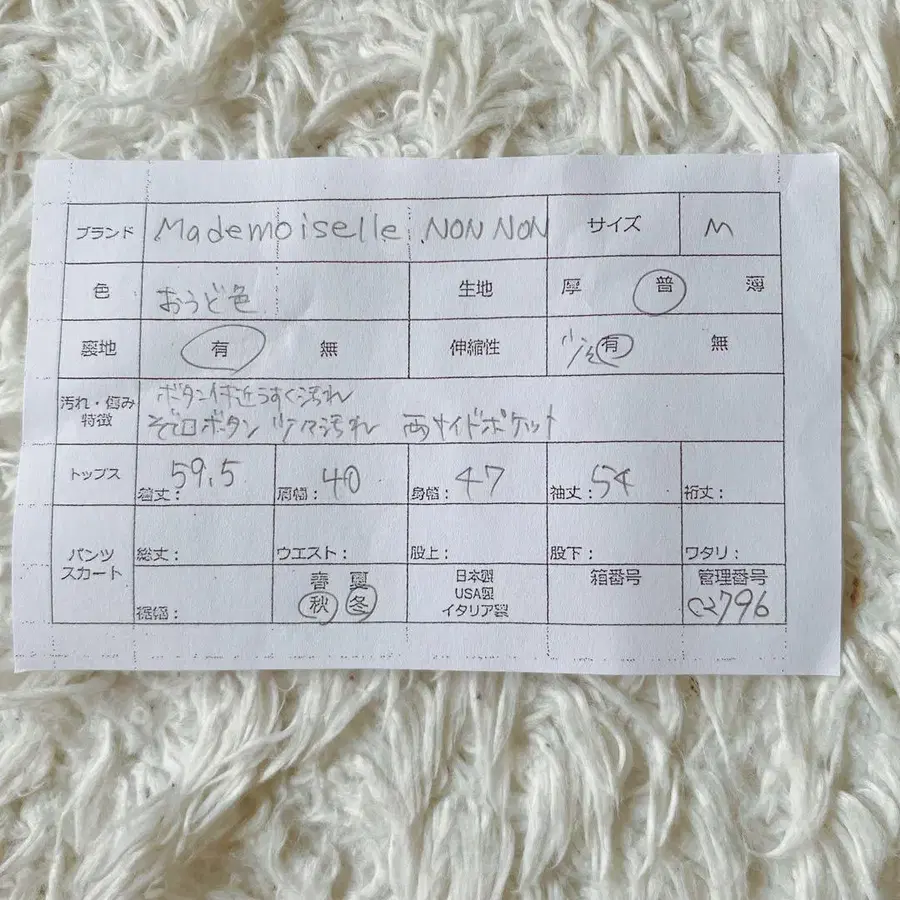 ブランド Mademoiselle NON NON サイズ M
色 おうど色 生地 厚 普 薄
裏地 有 無 伸縮性 少々 有 無
汚れ・傷み
特徴
ボタン付近うすく汚れ
そで口ボタン 少々汚れ 両サイドポケット
トップス 着丈: 59.5 肩幅: 40 身幅: 47 袖丈: 54 裄丈:
パンツ
スカート
総丈: ウエスト: 股上: 股下: ワタリ:
裾幅:
春 夏
秋 冬
日本製
USA製
イタリア製
箱番号
管理番号
C2796